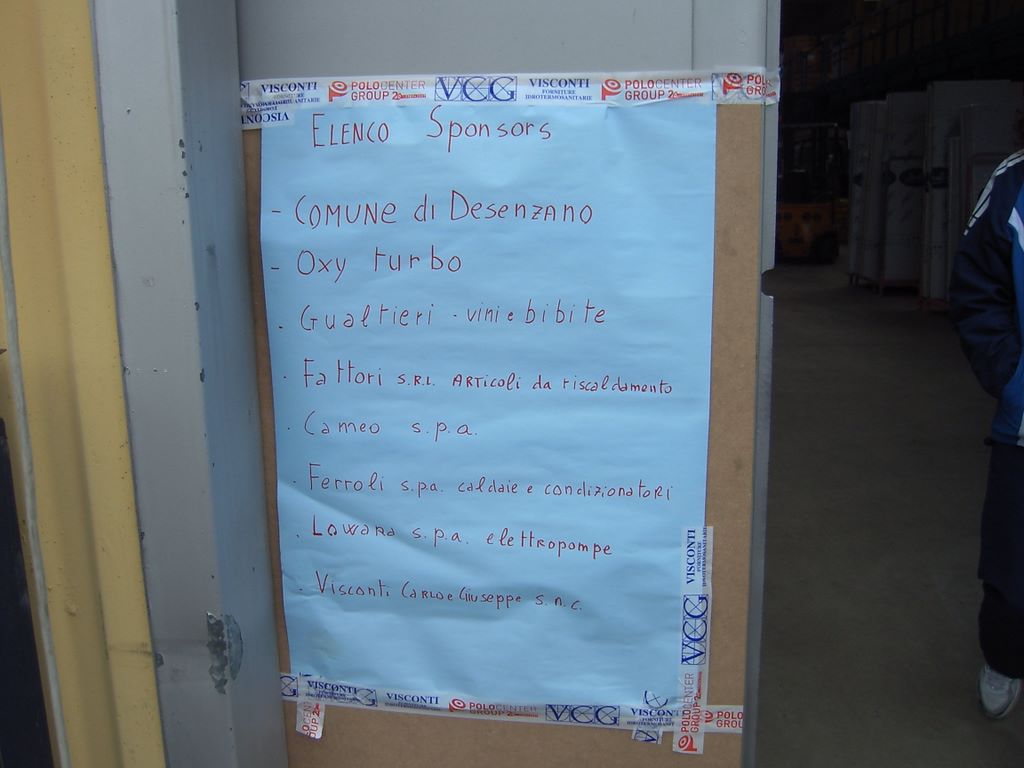 VISCONTI FORNITURE IDROTERMOSANITARIE POLOCENTER GROUP VCG VISCONTI FORNITURE IDROTERMOSANITARIE POLOCENTER GROUP POLO GRO
ELENCO Sponsors
- COMUNE di DesenzANO
- Oxy turbo
- Gualtieri - vini e bibite
- Fattori S.R.L. ARTicoli da riscaldamento
- Cameo s.p.a.
- Ferroli s.p.a. caldaie e condizionatori
- Lowara s.p.a. elettropompe
- Visconti Carlo e Giuseppe s.n.c.
VISCONTI FORNITURE IDROTERMOSANITARIE
VCG
POLOCENTER GROUP
VISCONTI VISCONTI POLOCENTER GROUP VCG VISCONTI POLO GRO